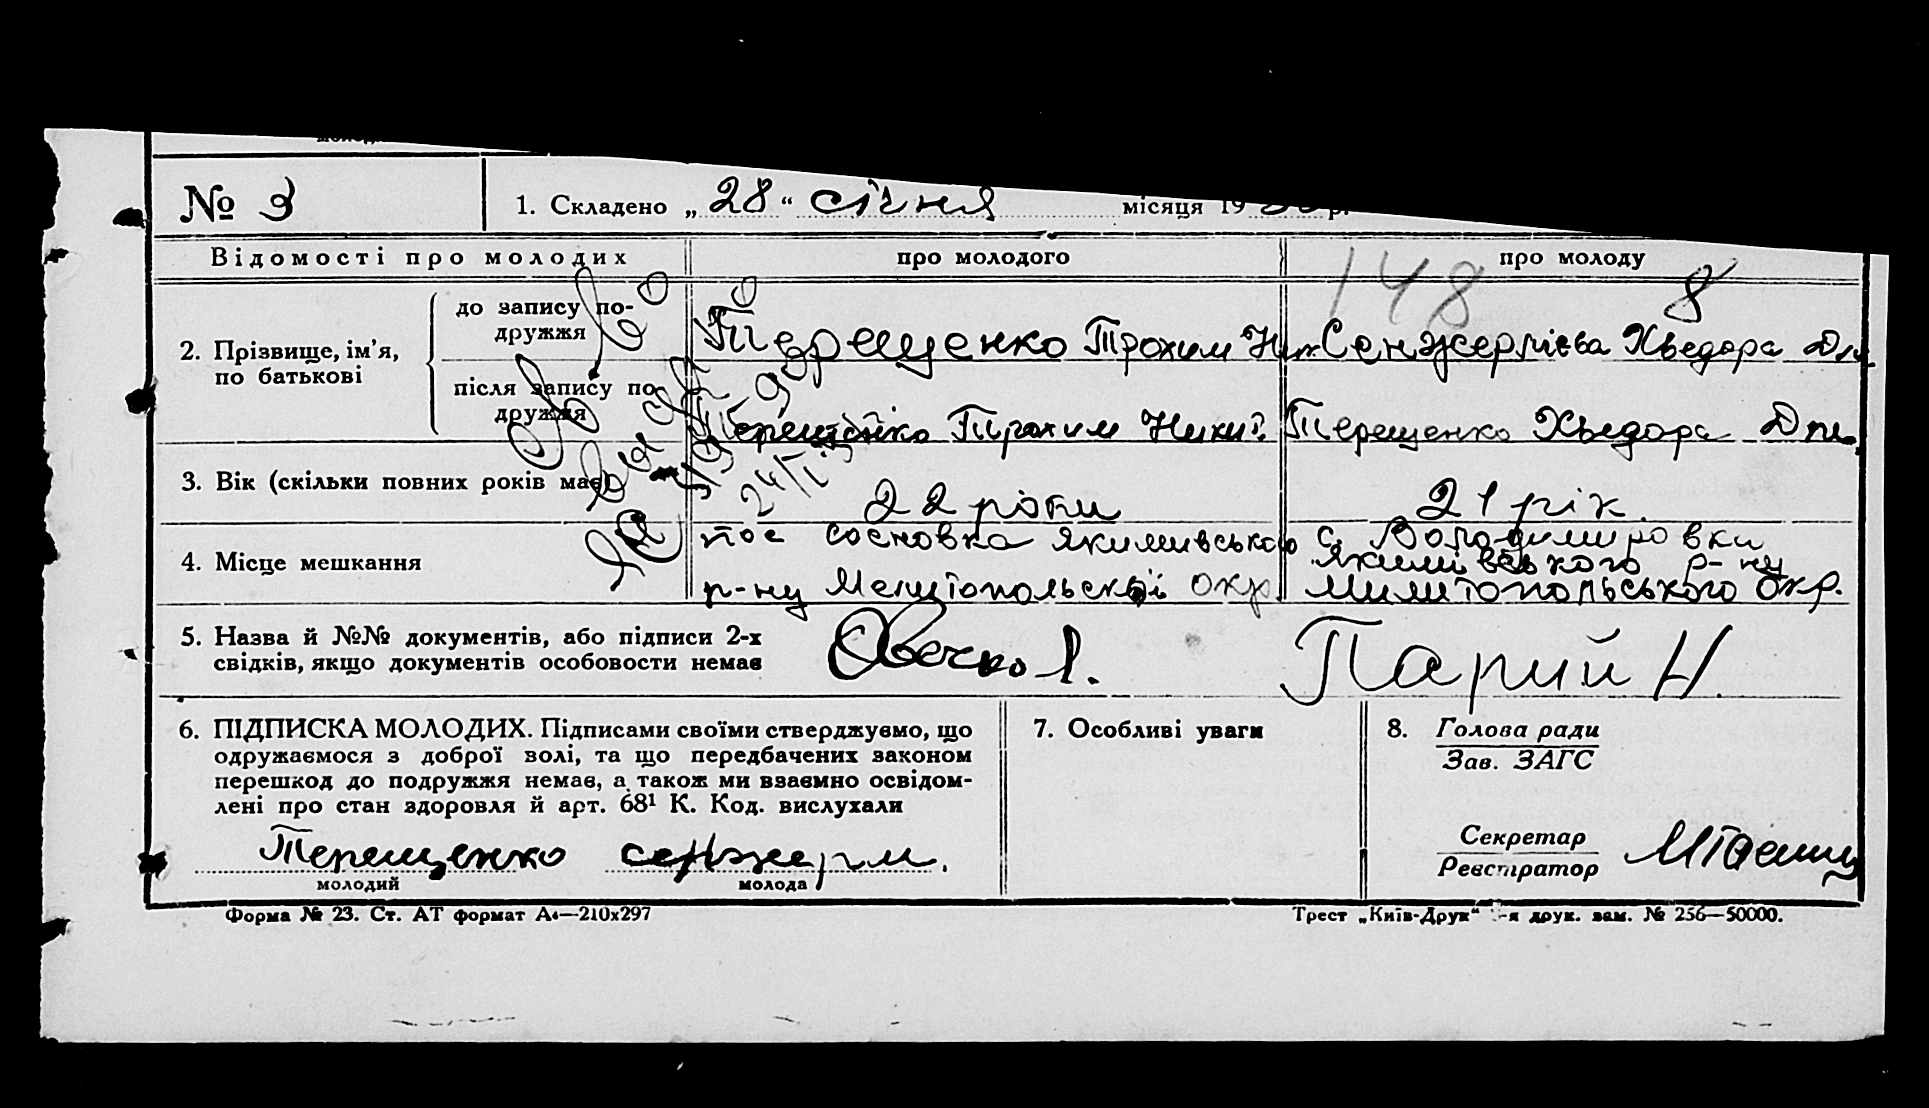 № 3
1. Складено „ 28 “ січня місяця 19 р.
Відомості про молодих
про молодого
про молоду
148
8
2. Прізвище, ім’я, по батькові
до запису по-
дружжя
Терещенко Трохим
Сенжерлієва Хведора Дм.
після запису по-
дружжя
Терещенко Трохим Никиф.
Терещенко Хведора Дм.
3. Вік (скільки повних років має)
22 роки
21 рік
4. Місце мешкання
пос Сосновка Якимивського
р-ну Мелитопольської окр.
с. Володимировки
Якимівського р-ну
Милитопольського окр.
5. Назва й №№ документів, або підписи 2-х
свідків, якщо документів особовости немає
Овечко І.
Парий Н.
6. ПІДПИСКА МОЛОДИХ. Підписами своїми стверджуємо, що
одружаємося з доброї волі, та що передбачених законом
перешкод до подружжя немає, а також ми взаємно освідом-
лені про стан здоровля й арт. 68¹ К. Код. вислухали
Терещенко
сенжерли.
молодий
молода
7. Особливі уваги
8. Голова ради
Зав. ЗАГС
Секретар
Реєстратор
Форма № 23. Ст. АТ формат А₄—210х297
Трест „Київ-Друк“ -я друк. зам. № 256—50000.